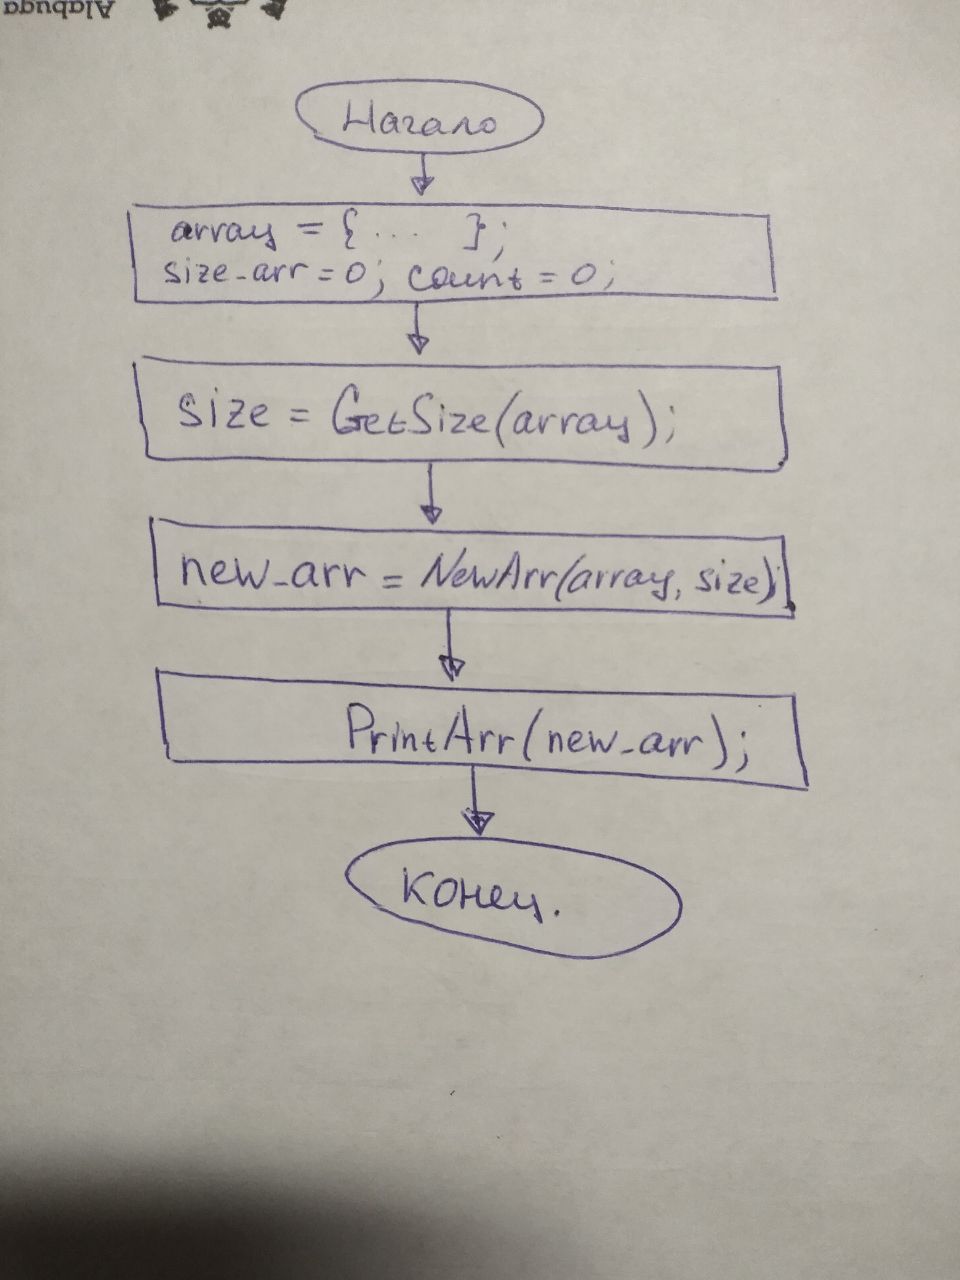 Alabuga
Начало
array = {... };
size_arr = 0; count = 0;
size = GetSize(array);
new_arr = NewArr(array, size);
PrintArr(new_arr);
конец.